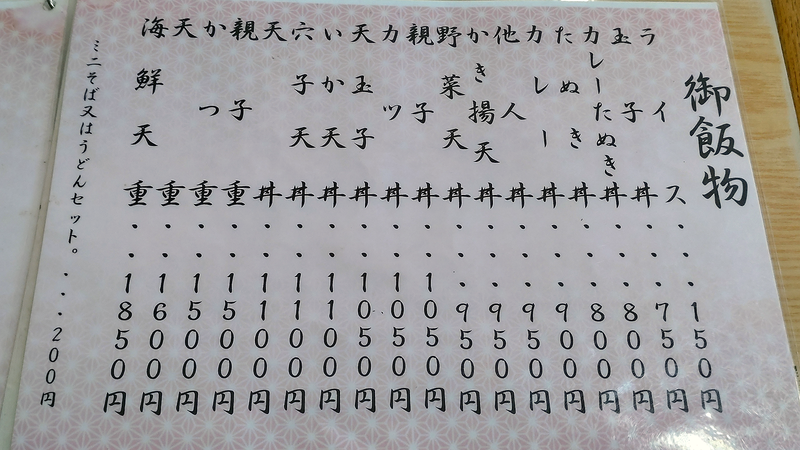 御飯物
ライス・・・150円
玉子丼・・・750円
カレーたぬき丼・・・800円
たぬき丼・・・800円
カレー丼・・・900円
他人丼・・・950円
かき揚天丼・・・950円
野菜天丼・・・950円
親子丼・・1000円
カツ丼・・1050円
天玉子丼・・1050円
いか天丼・・1100円
穴子天丼・・1100円
天丼・・1100円
親子重・・1500円
かつ重・・1500円
天重・・1600円
海鮮天重・・1850円
ミニそば又はうどんセット。・・・200円